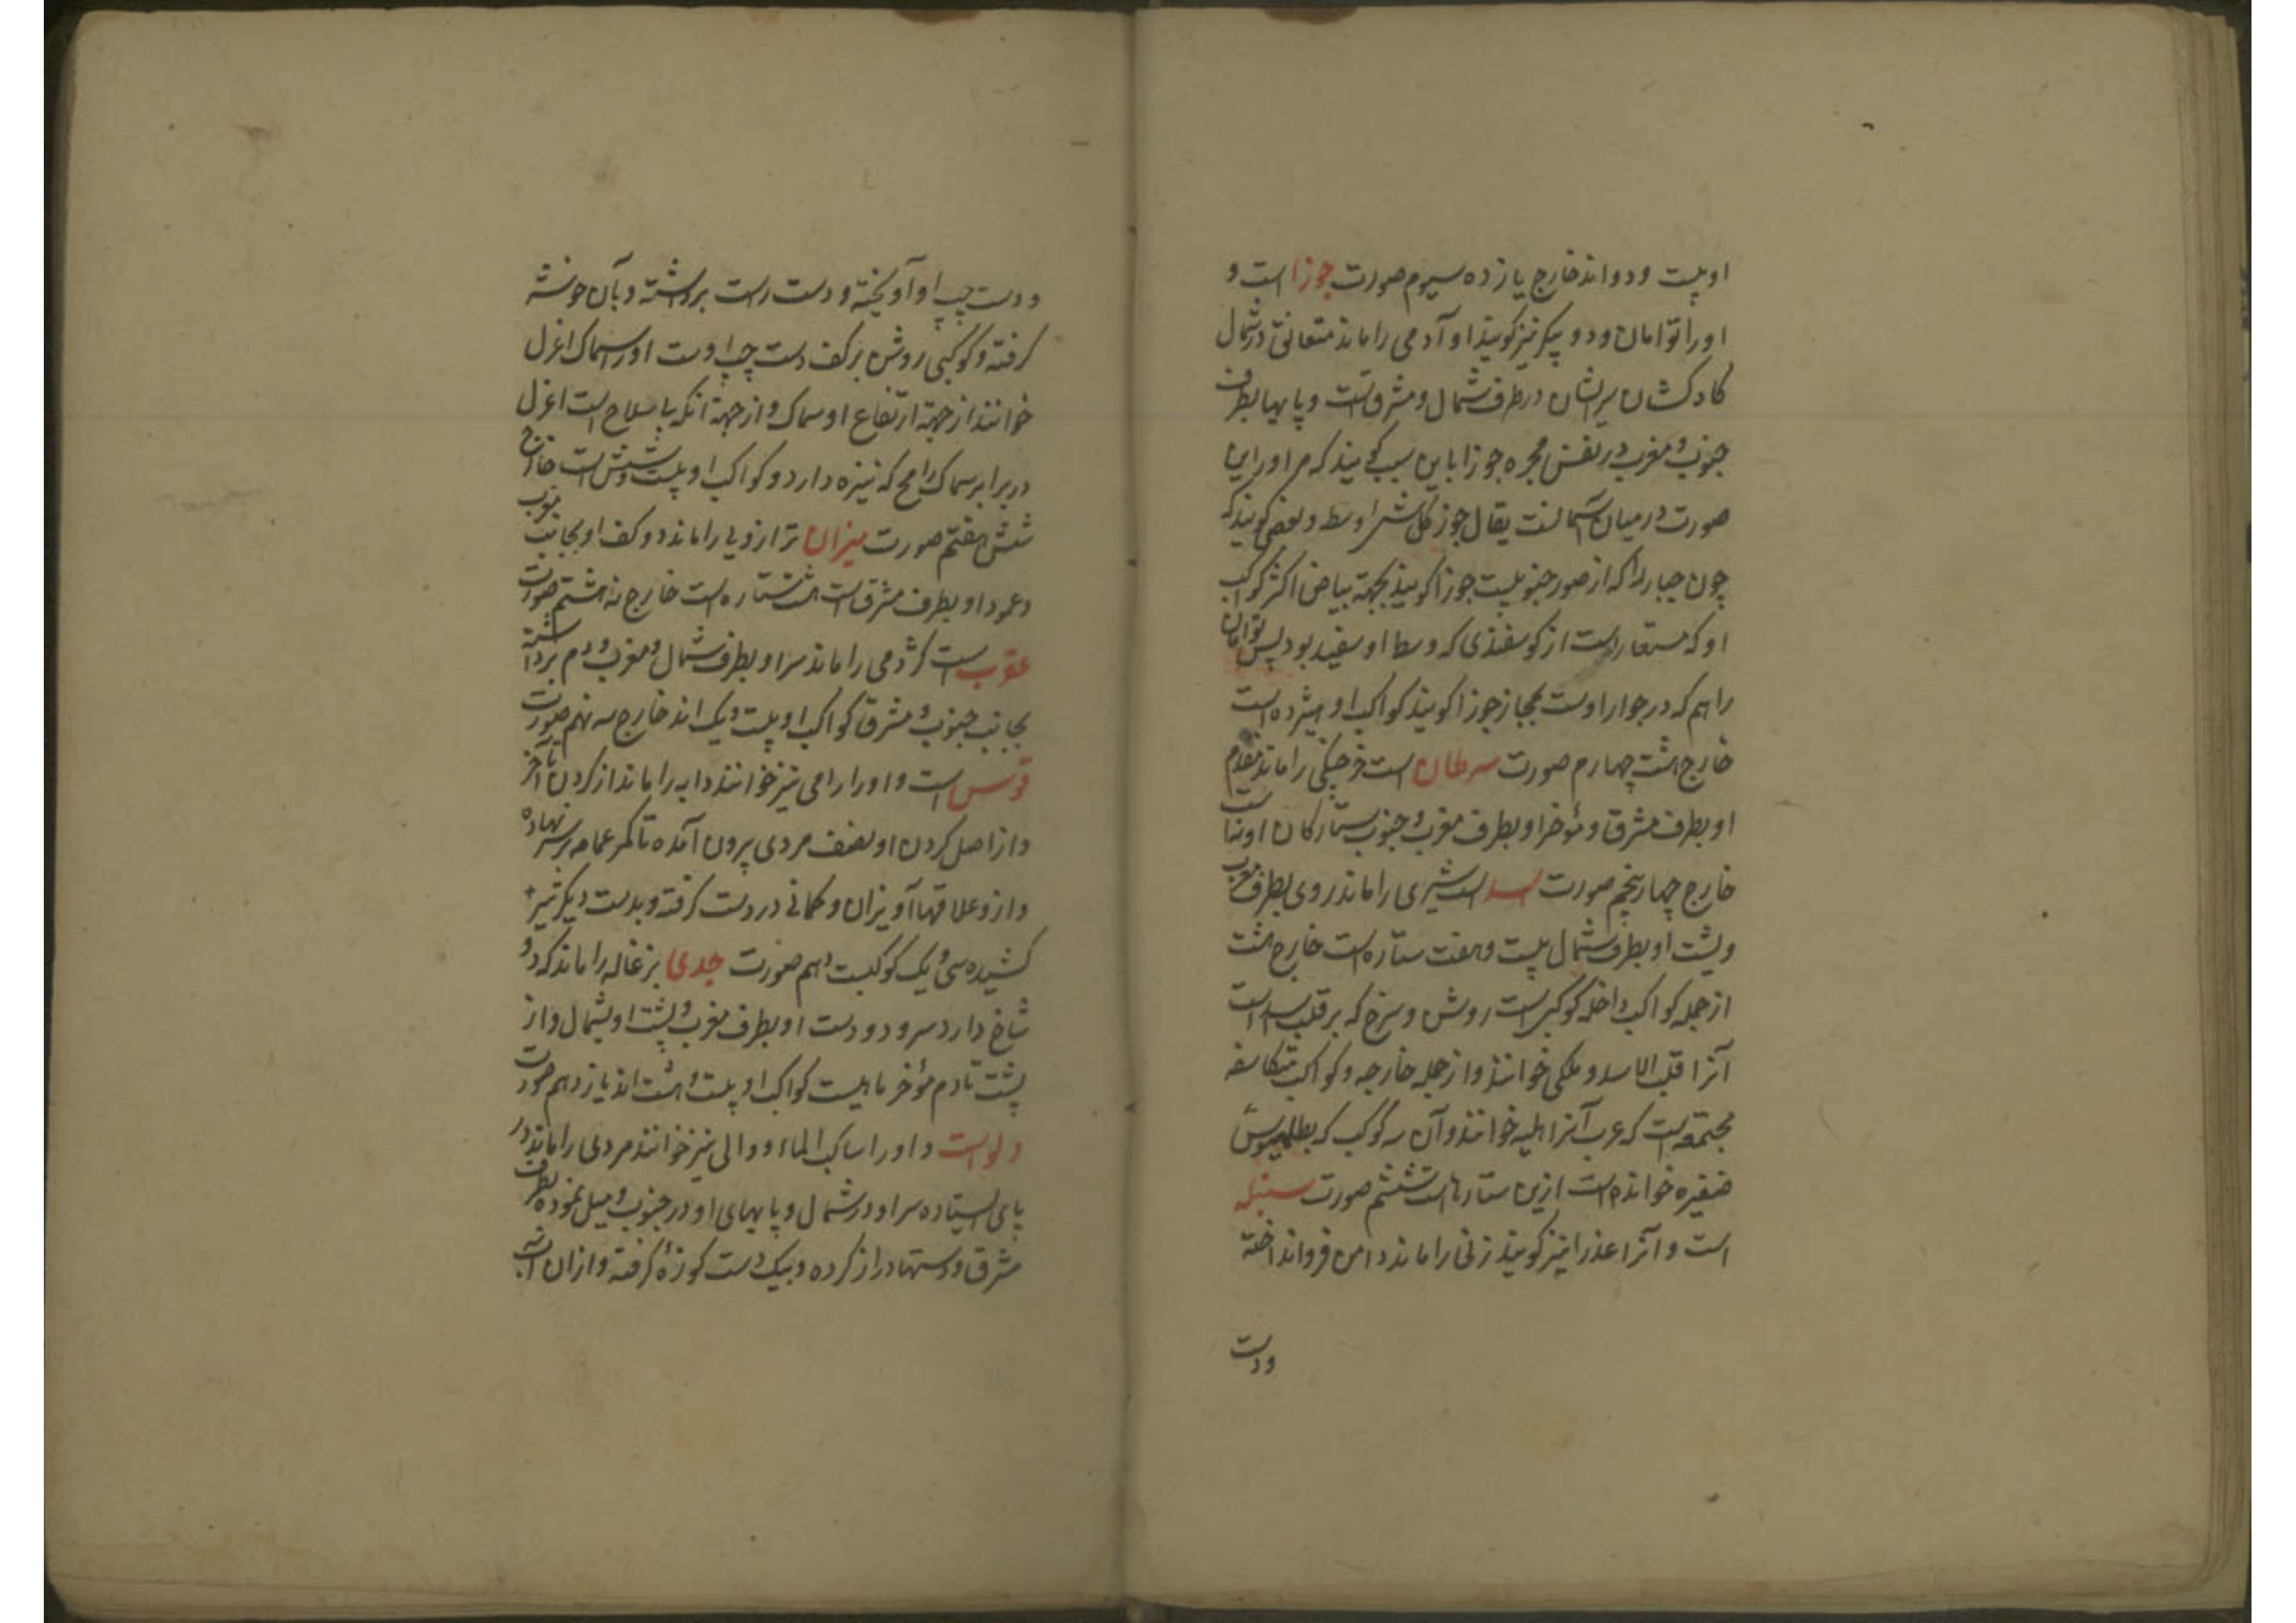 او بیست و دو اند خارج یازده سیوم صورت جوزا است و
او را توامان و دو پیکر نیز کویند او آدمی را ماند متعانق در شمال
کادکشان سرایشان در طرف شمال و مشرقست و پایها بطرف
جنوب و مغرب در نفس مجره جوزا باین سبب کویند که مر او را این
صورت در میان آسمانست یقال جوز کل شئ اوسطه و بعضی کویند که
چون جبار را که از صور جنوبیست جوزا کویند بجهة بیاض اکثر کواکب
او که مستعار است از کوسفندی که وسط او سفید بود پس توامان
را هم که در جوار اوست بمجاز جوزا کویند کواکب او هیژده است
خارج هشت چهارم صورت سرطان است خرچنکی را ماند مقدم
او بطرف مشرق و مؤخر او بطرف مغرب و جنوب ستارکان او نه است
خارج چهار پنجم صورت اسد است شیری را ماند روی بطرف مغرب
و پشت او بطرف شمال بیست و هفت ستاره است خارج هشت
از جمله کواکب داخله کوکبی است روشن و سرخ که بر قلب اسد است
آنرا قلب الاسد و ملکی خوانند و از جمله خارجه و کواکب متکاسفه
مجتمعه است که عرب آنرا هلبه خوانند و آن سه کوکب که بطلمیوس
ضفیره خوانده است ازین ستارهاست ششم صورت سنبله
است و آنرا عذرا نیز کویند زنی را ماند دامن فرو انداخته
و دست
و دست چپ او آویخته و دست راست برداشته و بآن خوشه
کرفته و کوکبی روشن بر کف دست چپ اوست او را سماک اعزل
خوانند از جهة ارتفاع او سماک و از جهة انکه با سلاح است اعزل
در برابر سماک رامح که نیزه دارد و کواکب او بیست و شش است خارج
شش هفتم صورت میزان ترازویی را ماند دو کف او بجانب مغرب
و عمود او بطرف مشرق است هشت ستاره است خارج نه هشتم صورت
عقرب است کژدمی را ماند سر او بطرف شمال و مغرب و دم برداشته
بجانب جنوب و مشرق کواکب او بیست و یک اند خارج سه نهم صورت
قوس است و او را رامی نیز خوانند دابه را ماند از کردن تا آخر
و از اصل کردن او نصف مردی بیرون آمده تا کمر عمامه بر سر نهاده
و ازو علاقها آویزان و کمانی در دست کرفته و بدست دیکر تیر
کشیده سی و یک کوکبست دهم صورت جدی بزغاله را ماند که دو
شاخ دارد سر و دو دست او بطرف مغرب و پشت او بشمال و از
پشت تا دم مؤخر ماهیست کواکب او بیست و هشت اند یازدهم صورت
دلو است و او را ساکب الماء و والی نیز خوانند مردی را ماند در
پای ایستاده سر او در شمال و پایهای او در جنوب و میل نموده بطرف
مشرق و دستها دراز کرده و بیک دست کوزۀ کرفته و ازان آب